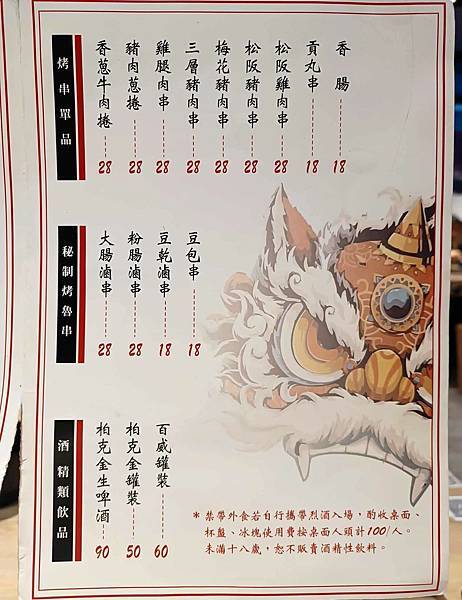 烤串單品
香蔥牛肉捲 28
豬肉蔥捲 28
雞腿肉串 28
三層豬肉串 28
梅花豬肉串 28
松阪豬肉串 28
松阪雞肉串 28
貢丸串 18
香腸 18
秘制烤魯串
大腸滷串 28
粉腸滷串 28
豆乾滷串 18
豆包串 18
酒精類飲品
柏克金生啤酒 90
柏克金罐裝 50
百威罐裝 60
* 禁帶外食若自行攜帶烈酒入場,酌收桌面、
杯盤、冰塊使用費按桌面人頭計100/人。
未滿十八歲,恕不販賣酒精性飲料。